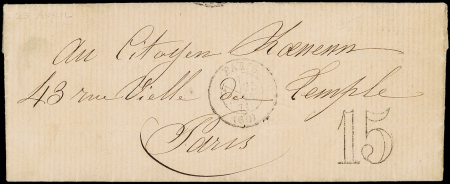 Au Citoyen Hoenenn
43 rue Vielle du Temple
Paris
15
PARIS
(60)